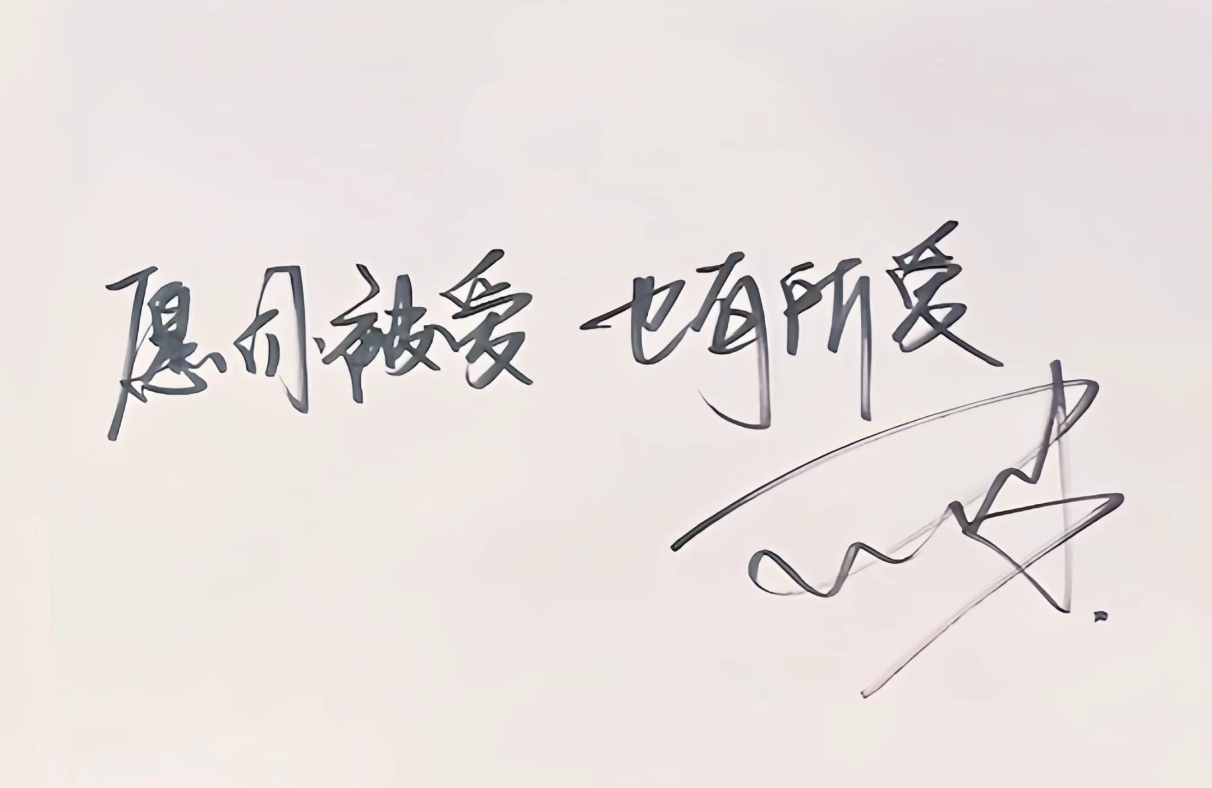 愿你被爱 也有所爱